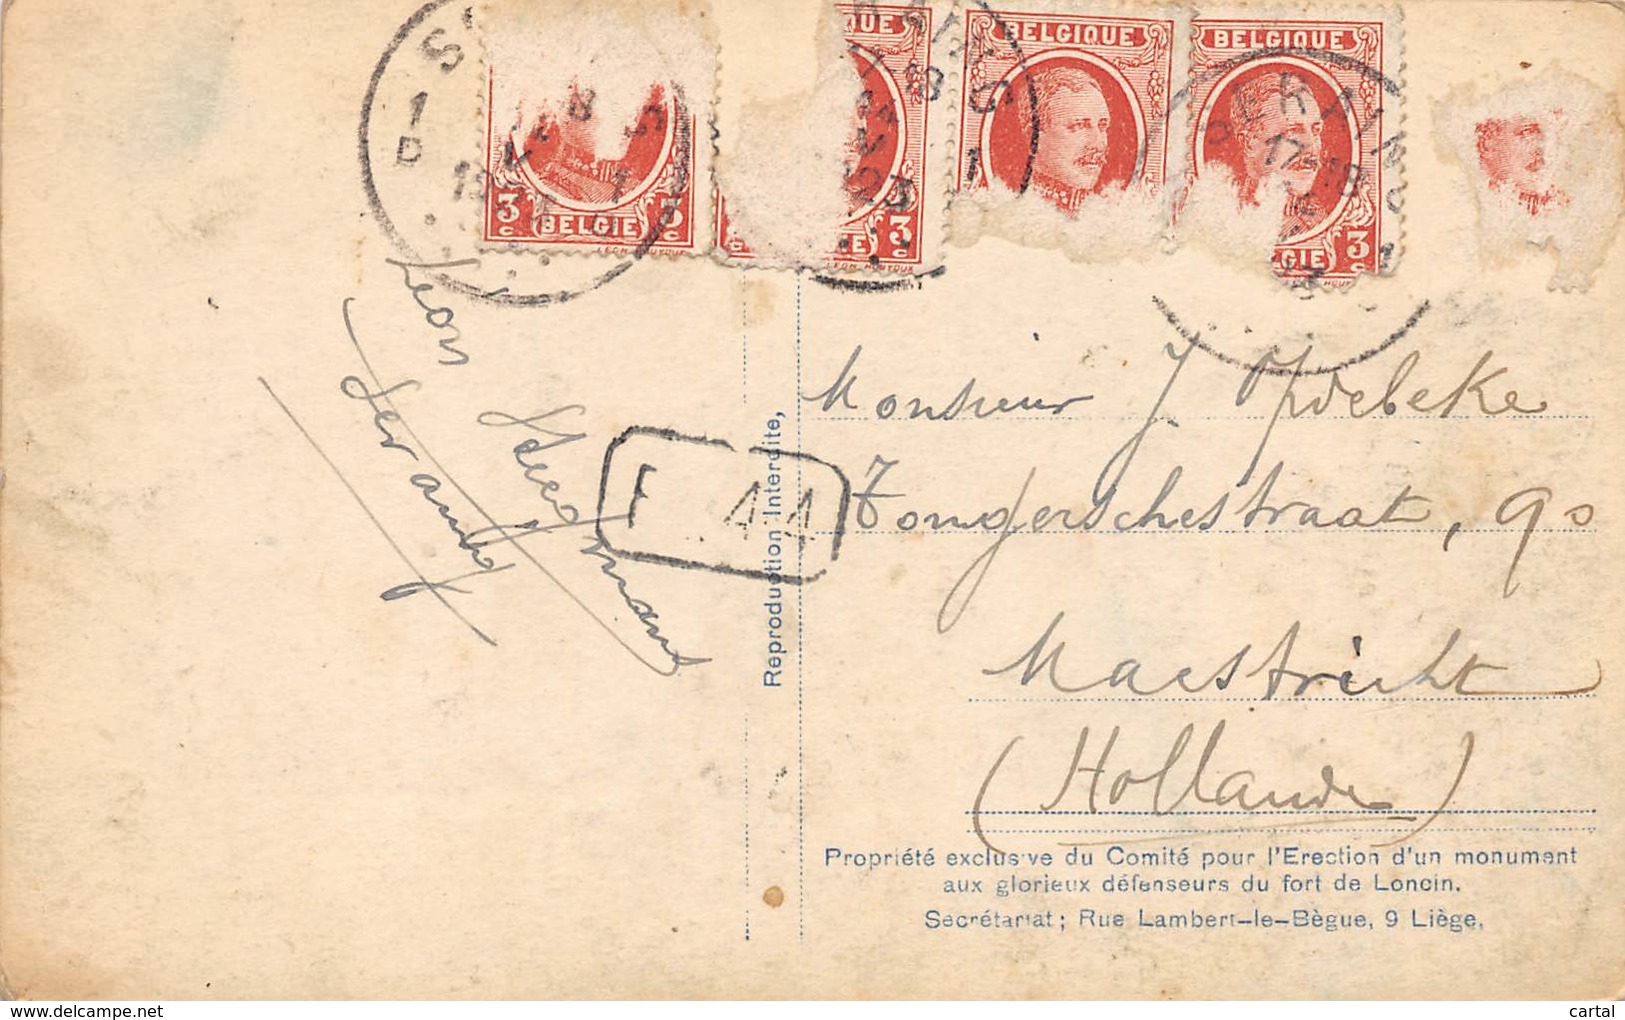 BELGIQUE
BELGIQUE
3 c BELGIE 3 c
3 c
3 c
LEON HOUYOUX
SERAING
17-18
1
23
Leon
Seraing
F 44
Reproduction Interdite,
Monsieur J Opdebeke
Tongerschestraat, 90
Maestricht
(Hollande)
Propriété exclusive du Comité pour l'Erection d'un monument
aux glorieux défenseurs du fort de Loncin.
Secrétariat ; Rue Lambert-le-Bègue, 9 Liège.
www.delcampe.net
cartal